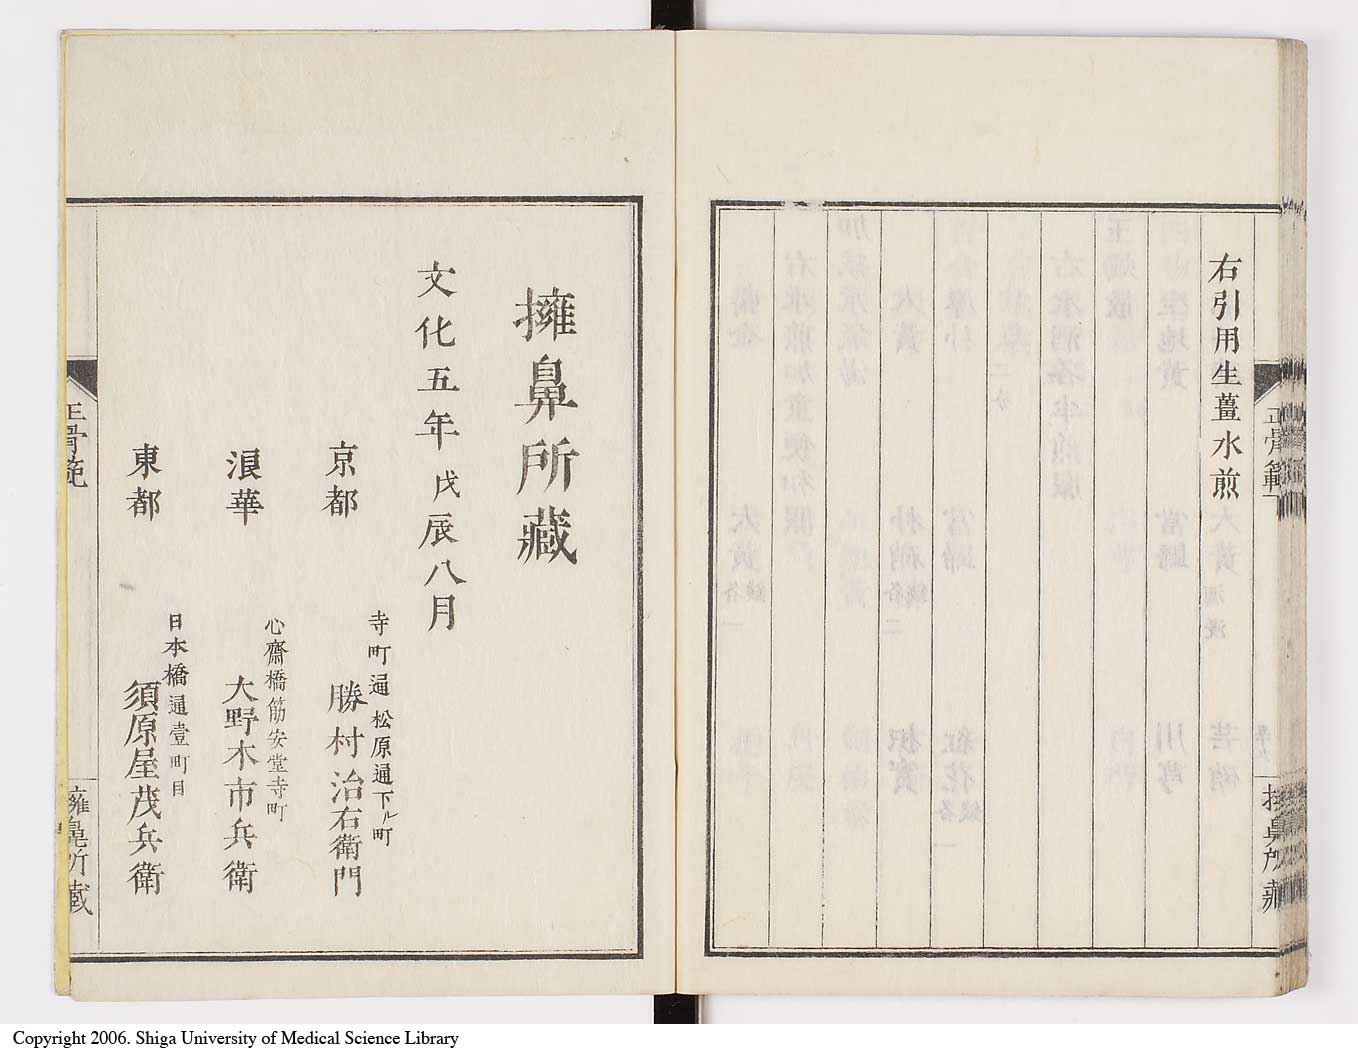 右引用生薑水煎
正骨範
擁鼻所藏
擁鼻所藏
文化五年戊辰八月
京都
寺町通松原通下ル町
勝村治右衛門
浪華
心齋橋筋安堂寺町
大野木市兵衛
東都
日本橋通壹町目
須原屋茂兵衛
正骨範
擁鼻所藏
Copyright 2006. Shiga University of Medical Science Library